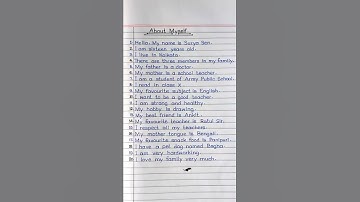 About Myself
1. Hello. My name is Surya Sen.
2. I am sixteen years old.
3. I live in Kolkata.
4. There are three members in my family.
5. My father is a doctor.
6. My mother is a school teacher.
7. I am a student of Army Public School.
8. I read in class X
9. My favourite subject is English.
10. I want to be a good teacher.
11. I am strong and healthy.
12. My hobby is drawing.
13. My best friend is Ankit.
14. My favourite teacher is Ratul Sir.
15. I respect all my teachers.
16. My mother tongue is Bengali.
17. My favourite snack food is Panipuri.
18. I have a pet dog named Bagha.
19. I am very hardworking.
20. I love my family very much.